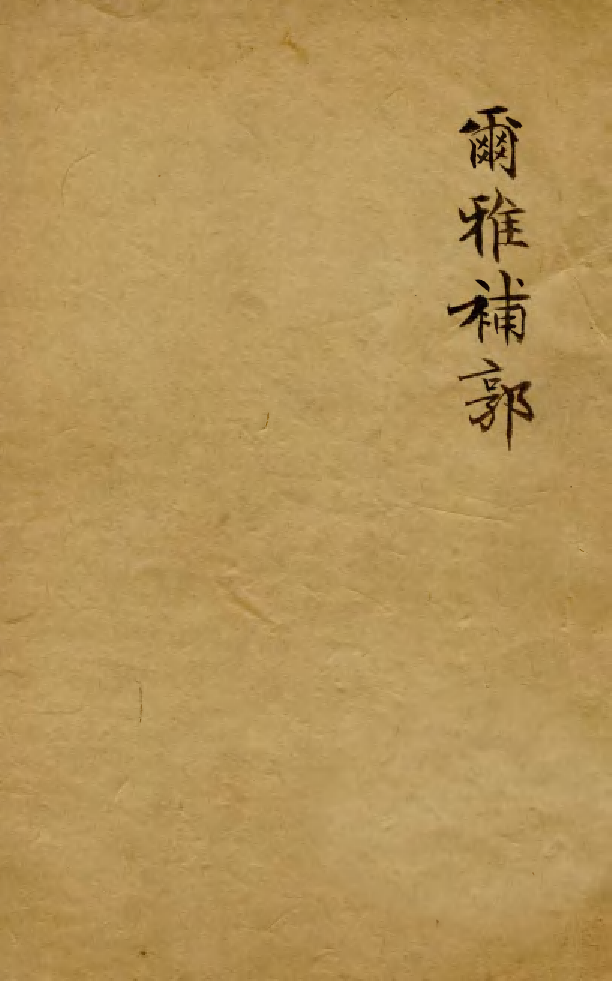 爾雅補郭